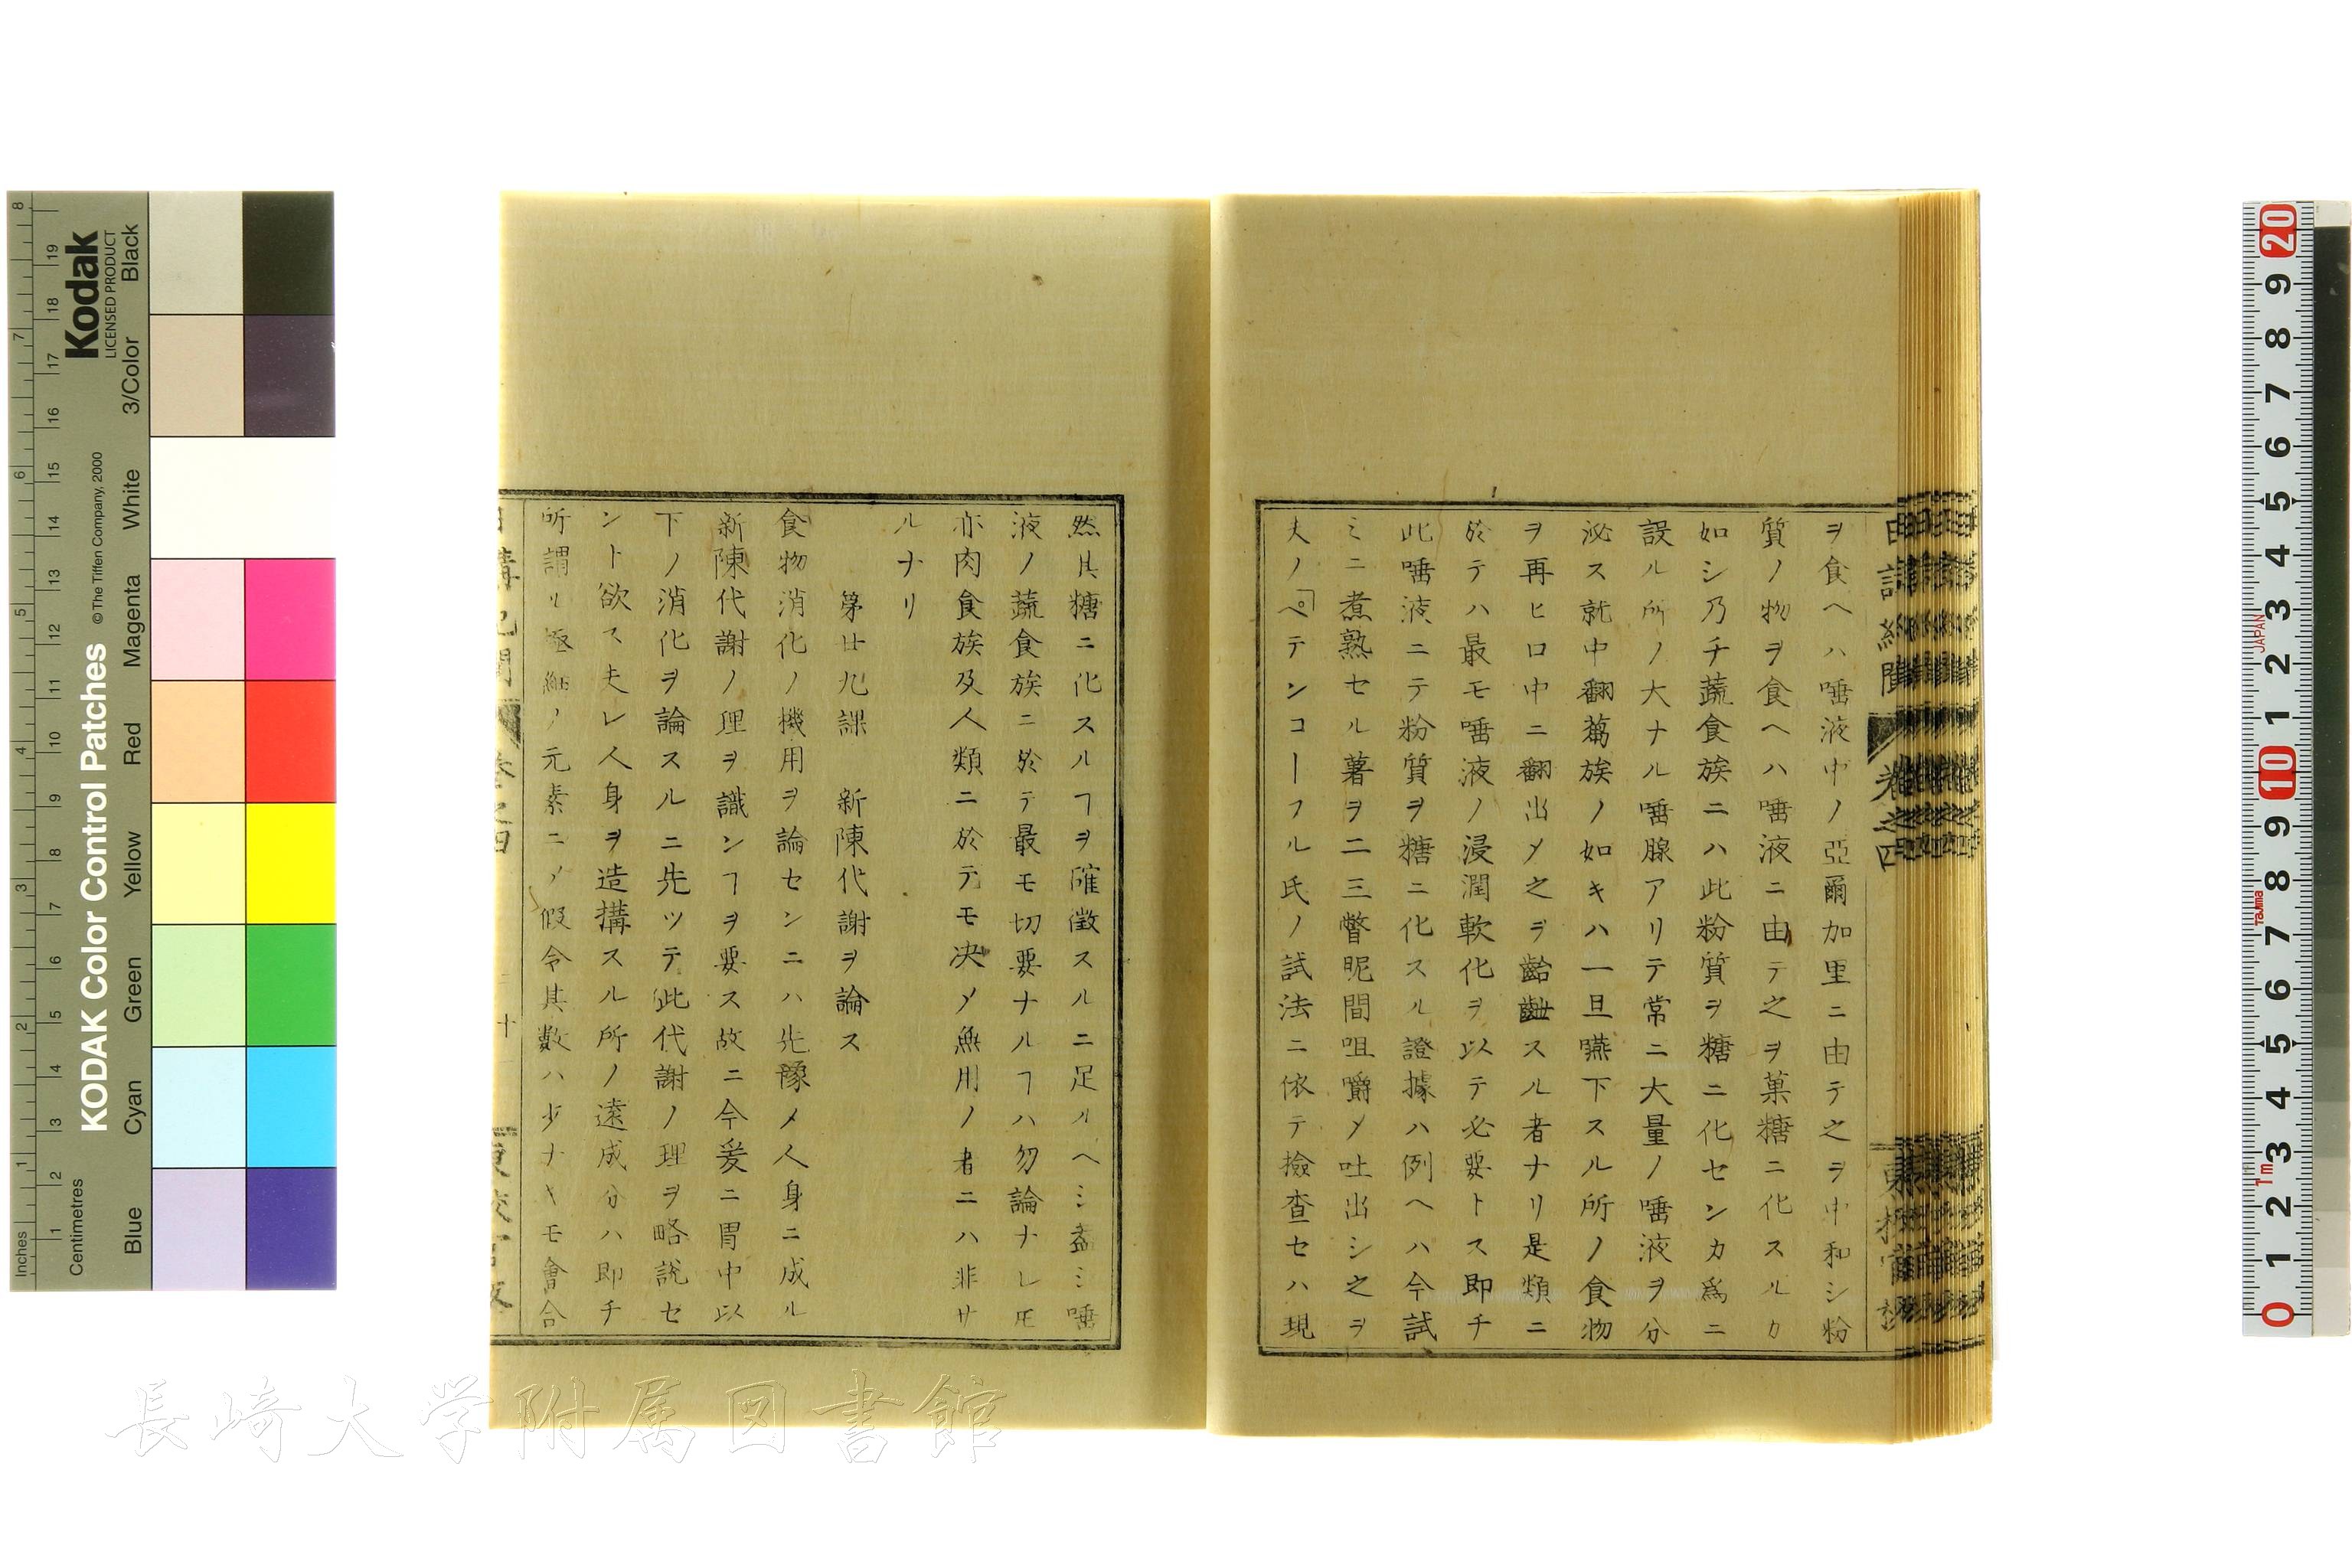 ヲ食ヘハ唾液中ノ亞爾加里ニ由テ之ヲ中和シ粉
質ノ物ヲ食ヘハ唾液ニ由テ之ヲ菓糖ニ化スルカ
如シ乃チ蔬食族ニハ此粉質ヲ糖ニ化センカ爲ニ
設ル所ノ大ナル唾腺アリテ常ニ大量ノ唾液ヲ分
泌ス就中翻蒭族ノ如キハ一旦嚥下スル所ノ食物
ヲ再ヒ口中ニ翻出メ之ヲ齝齛スル者ナリ是類ニ
於テハ最モ唾液ノ浸潤軟化ヲ以テ必要トス即チ
此唾液ニテ粉質ヲ糖ニ化スル證據ハ例ヘハ今試
ミニ煮熟セル薯ヲ二三瞥眤間咀嚼メ吐出シ之ヲ
夫ノペテンコーフル氏ノ試法ニ依テ撿査セハ現
然其糖ニ化スルヿヲ確徴スルニ足ルヘシ蓋シ唾
液ノ蔬食族ニ於テ最モ切要ナルヿハ勿論ナレ𪜈
亦肉食族及人類ニ於テモ决メ無用ノ者ニハ非サ
ルナリ
第廿九課 新陳代謝ヲ論ス
食物消化ノ機用ヲ論センニハ先豫メ人身ニ成ル
新陳代謝ノ理ヲ識ンヿヲ要ス故ニ今爰ニ胃中以
下ノ消化ヲ論スルニ先ツテ此代謝ノ理ヲ略説セ
ント欲ス夫レ人身ヲ造搆スル所ノ遠成分ハ即チ
所謂ル極細ノ元素ニノ假令其數ハ少ナキモ會合
卷之四
Kodak
LICENSED PRODUCT
KODAK Color Control Patches
© The Tiffen Company, 2000
Inches
Centimetres
Blue Cyan Green Yellow Red Magenta White 3/Color Black
長崎大学附属図書館
JAPAN
Tajima
1m